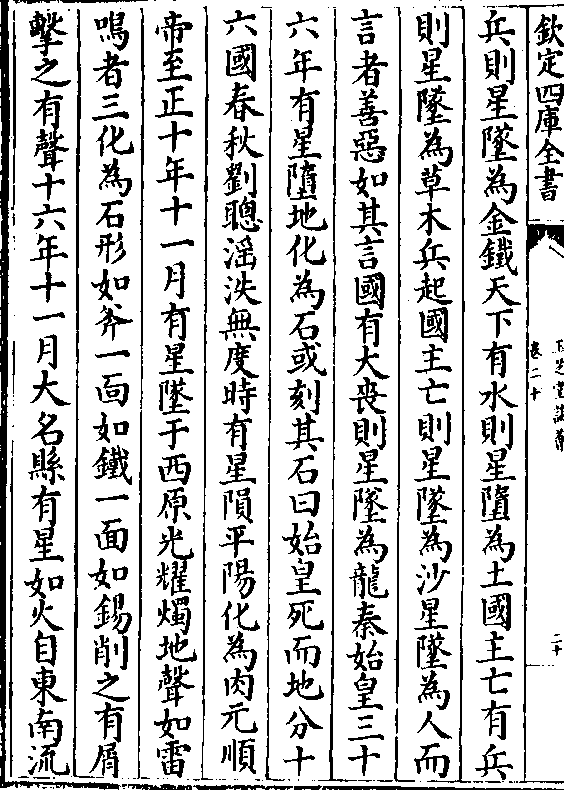 欽定四庫全書
卷二十
二十
兵則星墜為金鐵天下有水則星墮為土國主亡有兵
則星墜為草木兵起國主亡則星墜為沙星墜為人而
言者善惡如其言國有大喪則星墜為龍秦始皇三十
六年有星墮地化為石或刻其石曰始皇死而地分十
六國春秋劉聰滛泆無度時有星隕平陽化為肉元順
帝至正十年十一月有星墜于西原光耀燭地聲如雷
鳴者三化為石形如斧一面如鐵一面如錫削之有屑
擊之有聲十六年十一月大名縣有星如火自東南流